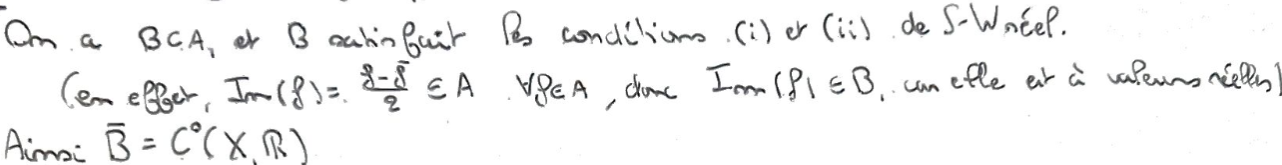 On a B⊂A, et B satisfait les conditions (i) et (ii) de S-W réel.
(en effet, Im(f) = (f-f̄)/2 ∈ A ∀f∈A, donc Im(f) ∈ B, car elle est à valeurs réelles)
Ainsi B̄ = C⁰(X,ℝ)